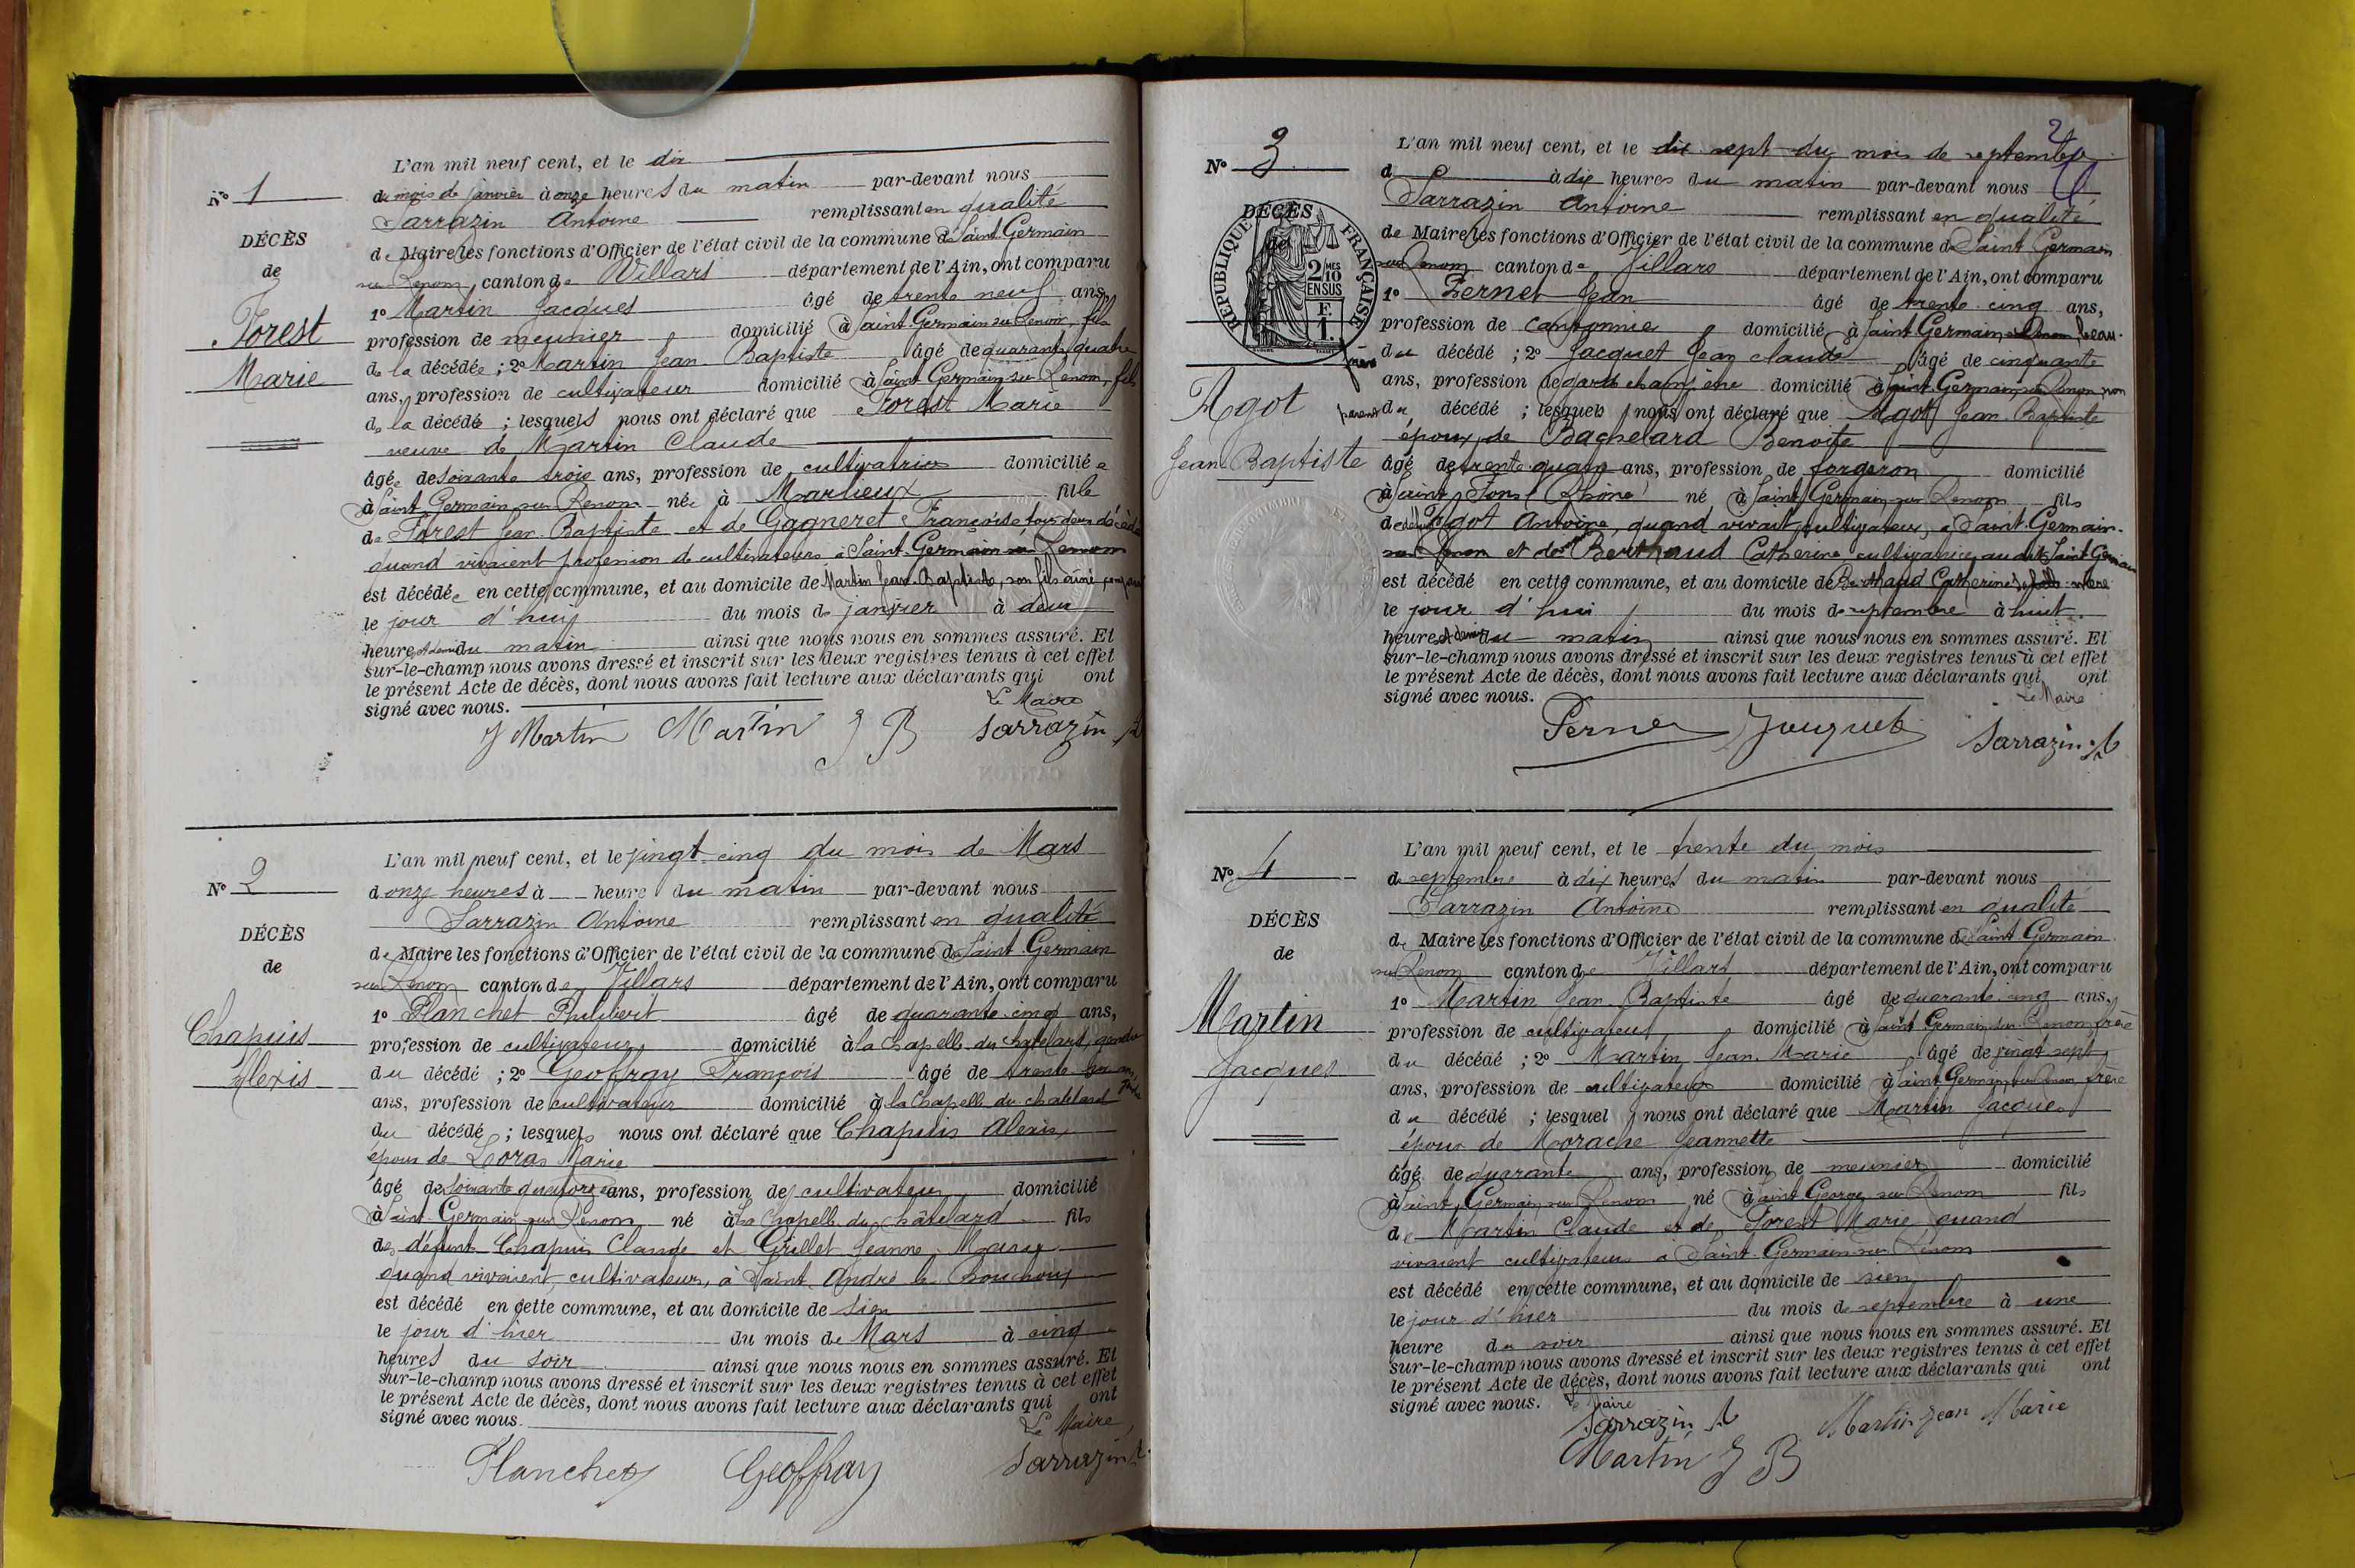 L'an mil neuf cent, et le dix
N° 1
du mois de janvier à onze heures du matin par-devant nous
Sarrazin Antoine remplissant en qualité
DÉCÈS
de Maire les fonctions d'Officier de l'état civil de la commune de Saint Germain
de
sur Renom, canton de Villars département de l'Ain, ont comparu
1° Martin Jacques âgé de trente neuf ans,
Forest
profession de meunier domicilié à Saint Germain sur Renom, fils
de la décédée ; 2° Martin Jean Baptiste âgé de quarante quatre
Marie
ans, profession de cultivateur domicilié à Saint Germain sur Renom, fils
de la décédé ; lesquels nous ont déclaré que Forest Marie
veuve de Martin Claude
âgée de soixante trois ans, profession de cultivatrice domiciliée
à Saint Germain sur Renom née à Marlieux fille
de Forest Jean Baptiste et de Gagneret Françoise tous deux décédés
quand vivaient profession de cultivateurs à Saint Germain sur Renom
est décédée en cette commune, et au domicile de Martin Jean-Baptiste, son fils ainé
le jour d'hui du mois de janvier à deux
heures et demi du matin ainsi que nous nous en sommes assuré. Et
sur-le-champ nous avons dressé et inscrit sur les deux registres tenus à cet effet
le présent Acte de décès, dont nous avons fait lecture aux déclarants qui ont
signé avec nous.
Le Maire
J Martin Martin J B Sarrazin A
L'an mil neuf cent, et le vingt cinq du mois de Mars
N° 2
d onze heures à heure du matin par-devant nous
Sarrazin Antoine remplissant en qualité
DÉCÈS
de Maire les fonctions d'Officier de l'état civil de la commune de Saint Germain
de
sur Renom canton de Villars département de l'Ain, ont comparu
1° Planchet Philibert âgé de quarante cinq ans,
Chapuis
profession de cultivateur domicilié à la Chapelle du chatelard, gendre
Alexis
du décédé ; 2° Geoffray François âgé de trente
ans, profession de cultivateur domicilié à la Chapelle du chatelard
du décédé ; lesquels nous ont déclaré que Chapuis Alexis
époux de Loras Marie
âgé de soixante quatorze ans, profession de cultivateur domicilié
à Saint Germain sur Renom né à la Chapelle du châtelard fils
de défunt Chapuis Claude et Grillet Jeanne Mary
quand vivaient cultivateurs, à Saint André le Bouchoux
est décédé en cette commune, et au domicile de sien
le jour d'hier du mois de Mars à cinq
heures du soir ainsi que nous nous en sommes assuré. Et
sur-le-champ nous avons dressé et inscrit sur les deux registres tenus à cet effet
le présent Acte de décès, dont nous avons fait lecture aux déclarants qui ont
signé avec nous.
Le Maire
Planchet Geoffray Sarrazin A
2
L'an mil neuf cent, et le dix sept du mois de septembre
N° 3
d à dix heures du matin par-devant nous
Sarrazin Antoine remplissant en qualité
DÉCÈS
de
RÉPUBLIQUE FRANÇAISE
2/10 MES EN SUS
F. 1.
de Maire les fonctions d'Officier de l'état civil de la commune de Saint Germain
sur Renom canton de Villars département de l'Ain, ont comparu
1° Pernet Jean âgé de trente cinq ans,
profession de cantonnier domicilié à Saint Germain sur Renom beau-
frère du décédé ; 2° Jacquet Jean claude âgé de cinquante
ans, profession de garde champêtre domicilié à Saint Germain sur Renom non
Agot
parent du décédé ; lesquels nous ont déclaré que Agot Jean Baptiste
époux de Bachelard Benoite
Jean-Baptiste
âgé de trente quatre ans, profession de forgeron domicilié
à Saint Fons (Rhône) né à Saint Germain sur Renom fils
de défunt Agot Antoine, quand vivait cultivateur, à Saint Germain-
sur Renom et de Berthaud Catherine cultivatrice, au dit Saint Germain
est décédé en cette commune, et au domicile de Berthaud Catherine, sa mère
le jour d'hui du mois de septembre à huit
heures et demi du matin ainsi que nous nous en sommes assuré. Et
sur-le-champ nous avons dressé et inscrit sur les deux registres tenus à cet effet
le présent Acte de décès, dont nous avons fait lecture aux déclarants qui ont
signé avec nous.
Le Maire
Pernet Jacquet Sarrazin A
L'an mil neuf cent, et le trente du mois
N° 4
de septembre à dix heures du matin par-devant nous
Sarrazin Antoine remplissant en qualité
DÉCÈS
de Maire les fonctions d'Officier de l'état civil de la commune de Saint Germain
de
sur Renom canton de Villars département de l'Ain, ont comparu
1° Martin Jean Baptiste âgé de quarante cinq ans,
Martin
profession de cultivateur domicilié à Saint Germain sur Renom frère
du décédé ; 2° Martin Jean Marie âgé de vingt sept
Jacques
ans, profession de cultivateur domicilié à Saint Germain sur Renom frère
du décédé ; lesquel nous ont déclaré que Martin Jacques
époux de Morache Jeannette
âgé de quarante ans, profession de meunier domicilié
à Saint Germain sur Renom né à Saint George sur Renom fils
de Martin Claude et de Forest Marie quand
vivaient cultivateurs à Saint Germain sur Renom
est décédé en cette commune, et au domicile de sien
le jour d'hier du mois de septembre à une
heure du soir ainsi que nous nous en sommes assuré. Et
sur-le-champ nous avons dressé et inscrit sur les deux registres tenus à cet effet
le présent Acte de décès, dont nous avons fait lecture aux déclarants qui ont
signé avec nous.
Le Maire
Sarrazin A Martin Jean Marie
Martin J B